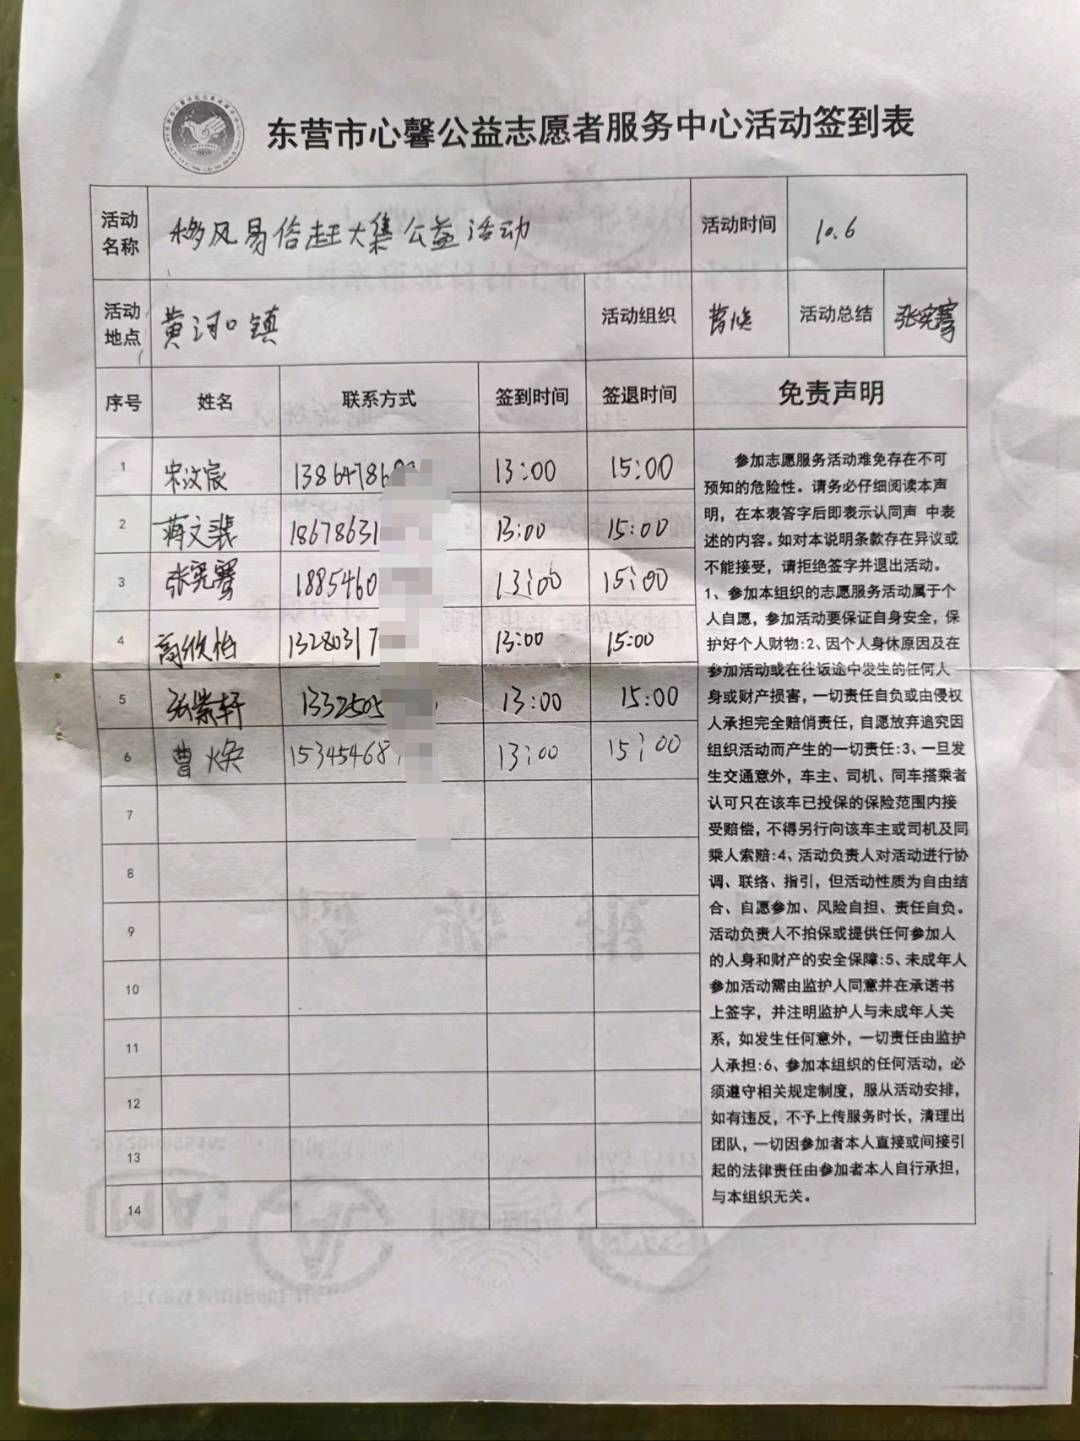 东营市心馨公益志愿者服务中心活动签到表
活动名称 移风易俗赶大集公益活动 活动时间 10.6
活动地点 黄河口镇 活动组织 曹焕 活动总结 张宪骞
序号 姓名 联系方式 签到时间 签退时间 免责声明
1 宋汶宸 13864786 13:00 15:00
2 蒋文裴 18678631 13:00 15:00
3 张宪骞 1885460 13:00 15:00
4 高欣怡 1328031 13:00 15:00
5 张紫轩 1332505 13:00 15:00
6 曹焕 15345468 13:00 15:00
7
8
9
10
11
12
13
14
参加志愿服务活动难免存在不可
预知的危险性。请务必仔细阅读本声
明，在本表答字后即表示认同声 中表
述的内容。如对本说明条款存在异议或
不能接受，请拒绝签字并退出活动。
1、参加本组织的志愿服务活动属于个
人自愿，参加活动要保证自身安全，保
护好个人财物:2、因个人身休原因及在
参加活动或在往饭途中发生的任何人
身或财产损害，一切责任自负或由侵权
人承担完全赔俏责任，自愿放弃追究因
组织活动而产生的一切责任:3、一旦发
生交通意外，车主、司机、同车搭乘者
认可只在该车已投保的保险范围内接
受赔偿，不得另行向该车主或司机及同
乘人索赔:4、活动负责人对活动进行协
调、联络、指引，但活动性质为自由结
合、自愿参加、风险自担、责任自负。
活动负责人不拍保或提供任何参加人
的人身和财产的安全保障:5、未成年人
参加活动需由监护人同意并在承诺书
上签字，并注明监护人与未成年人关
系，如发生任何意外，一切责任由监护
人承担:6、参加本组织的任何活动，必
须遵守相关规定制度，服从活动安排，
如有违反，不予上传服务时长，清理出
团队，一切因参加者本人直接或间接引
起的法律责任由参加者本人自行承担，
与本组织无关。